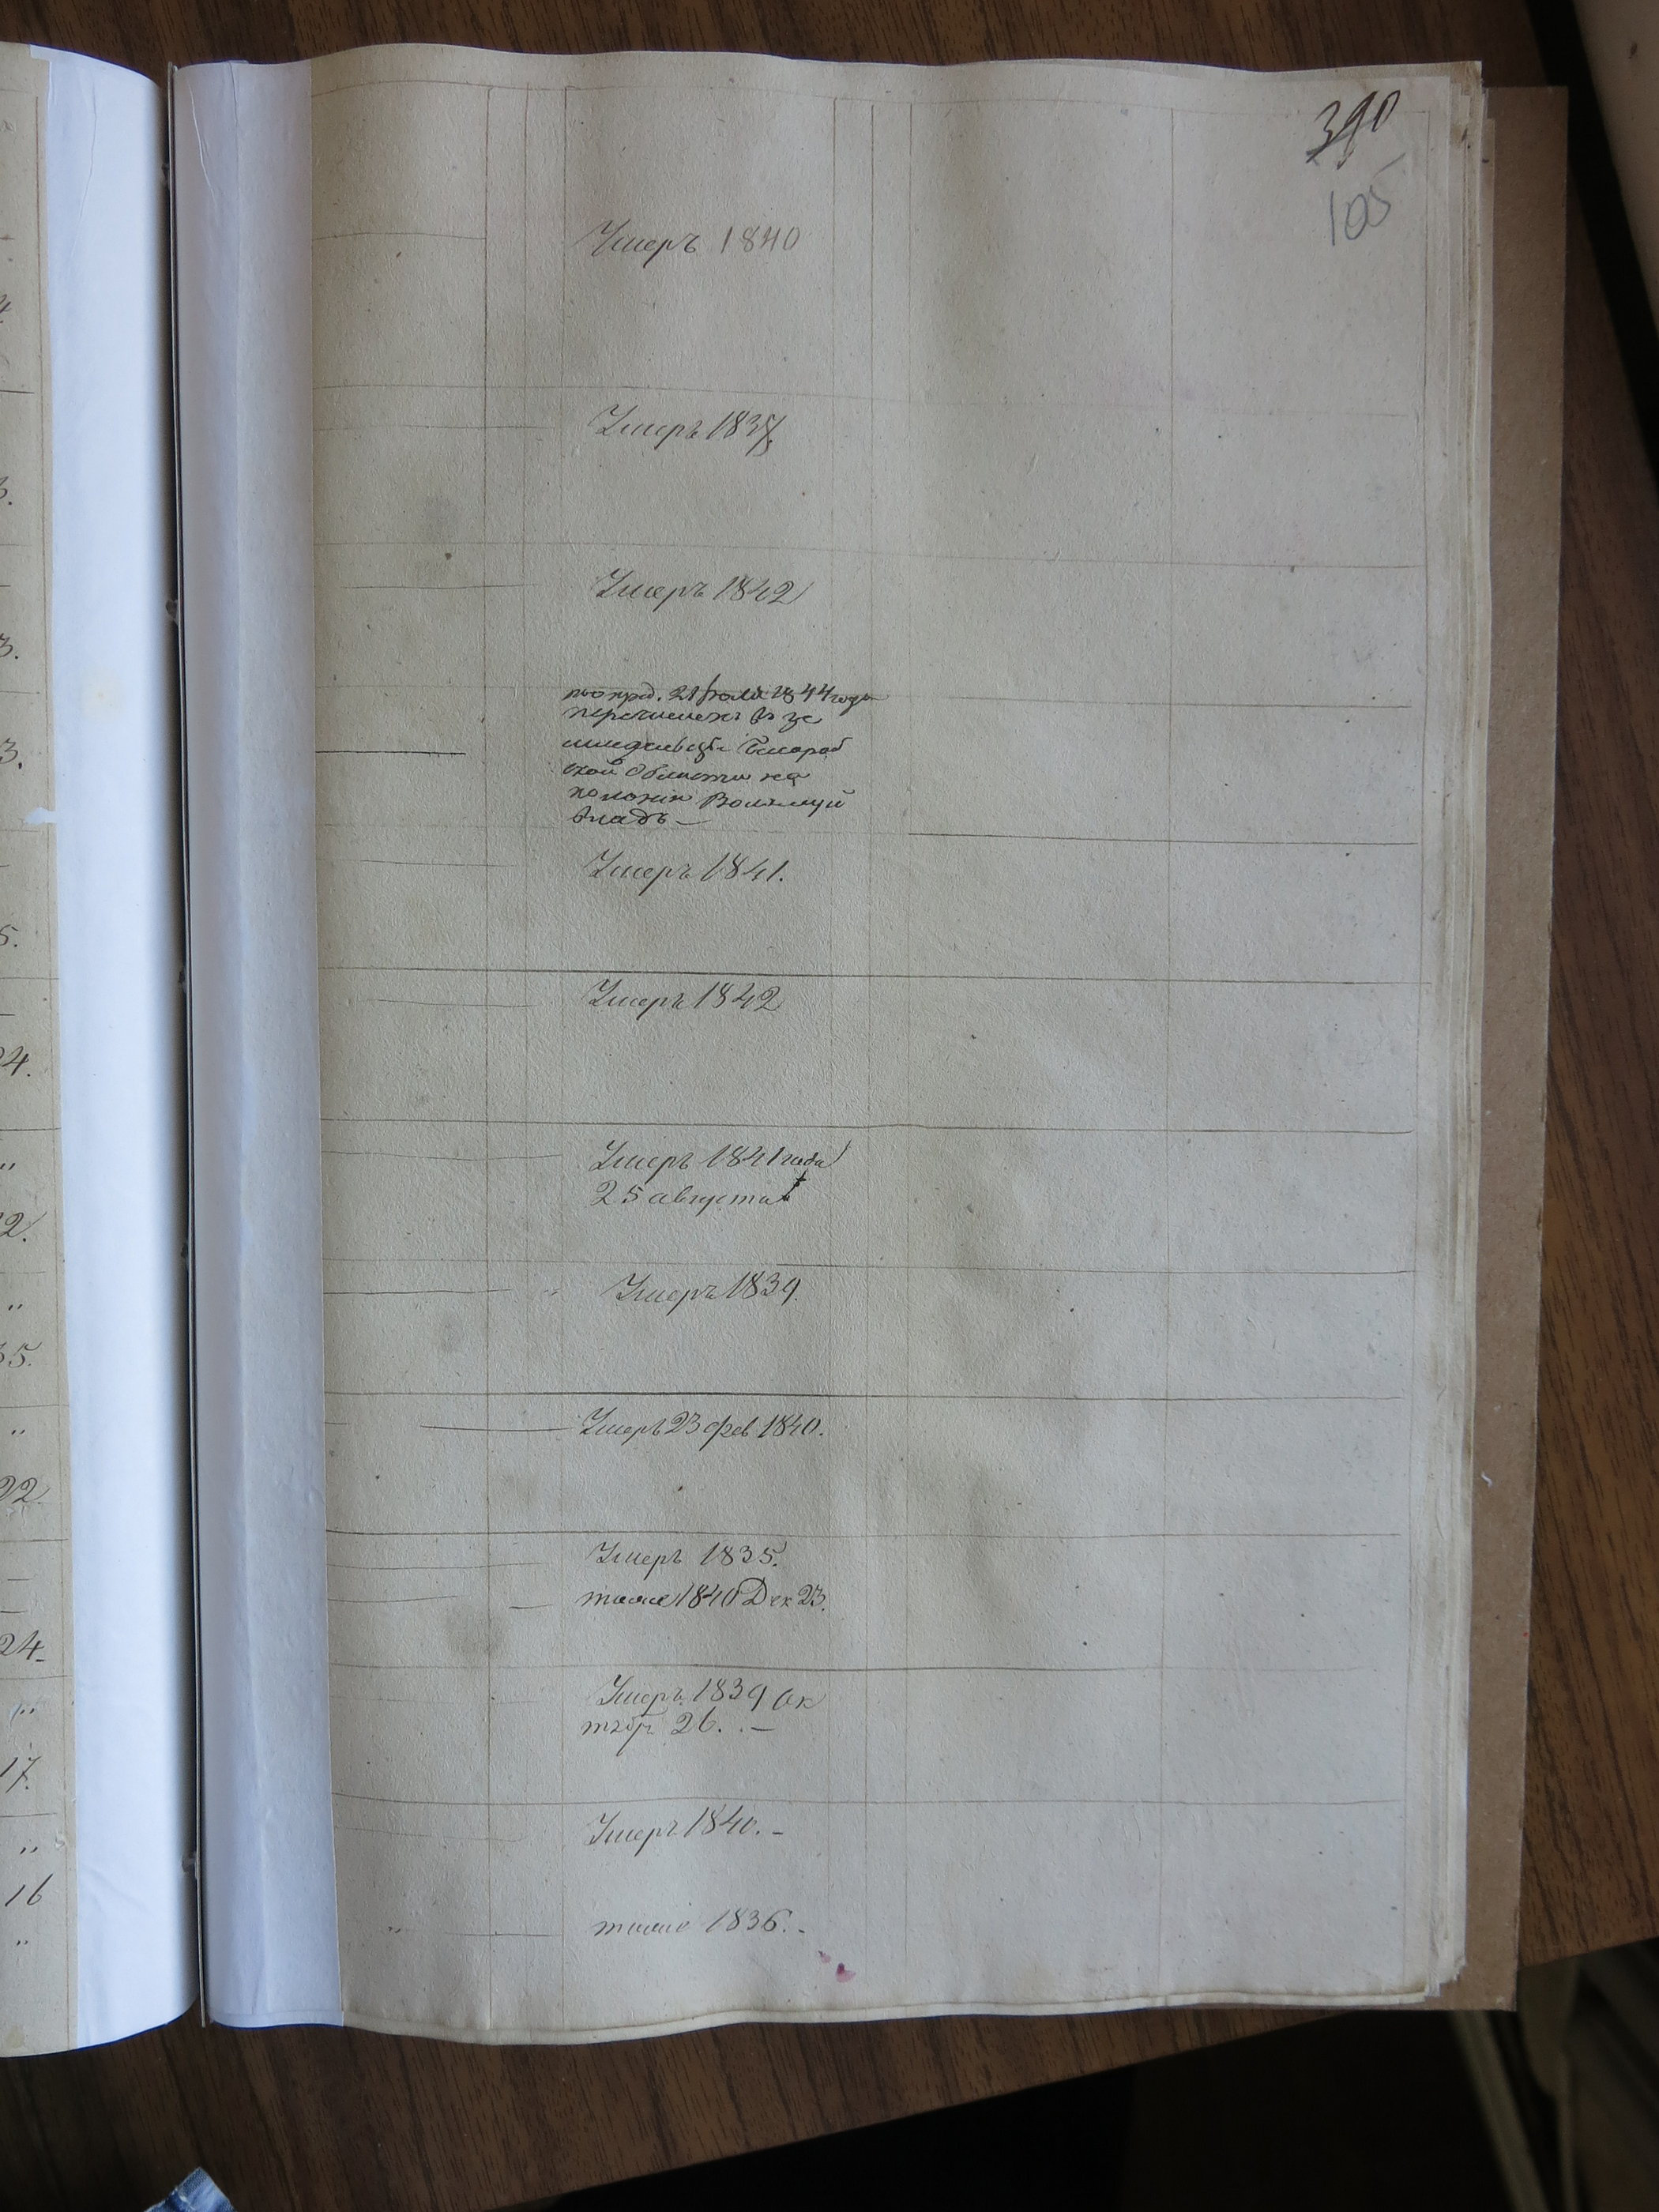 390
105
Умеръ 1840
Умеръ 1837
Умеръ 1842
по 21 1844 года
перечисленъ въ зе
Бесараб
ской Области на
колонію
Умеръ 1841.
Умеръ 1842
Умеръ 1841 года
25 августа
Умеръ 1839.
Умеръ 23 фев 1840.
Умеръ 1835.
тоже 1840 Дек 23.
Умеръ 1839 Ок
тябр 26. . —
Умеръ 1840. –
тоже 1836. –
4.
3.
3.
3.
5.
24.
"
2.
"
35.
"
22.
24.
"
17.
"
16
"